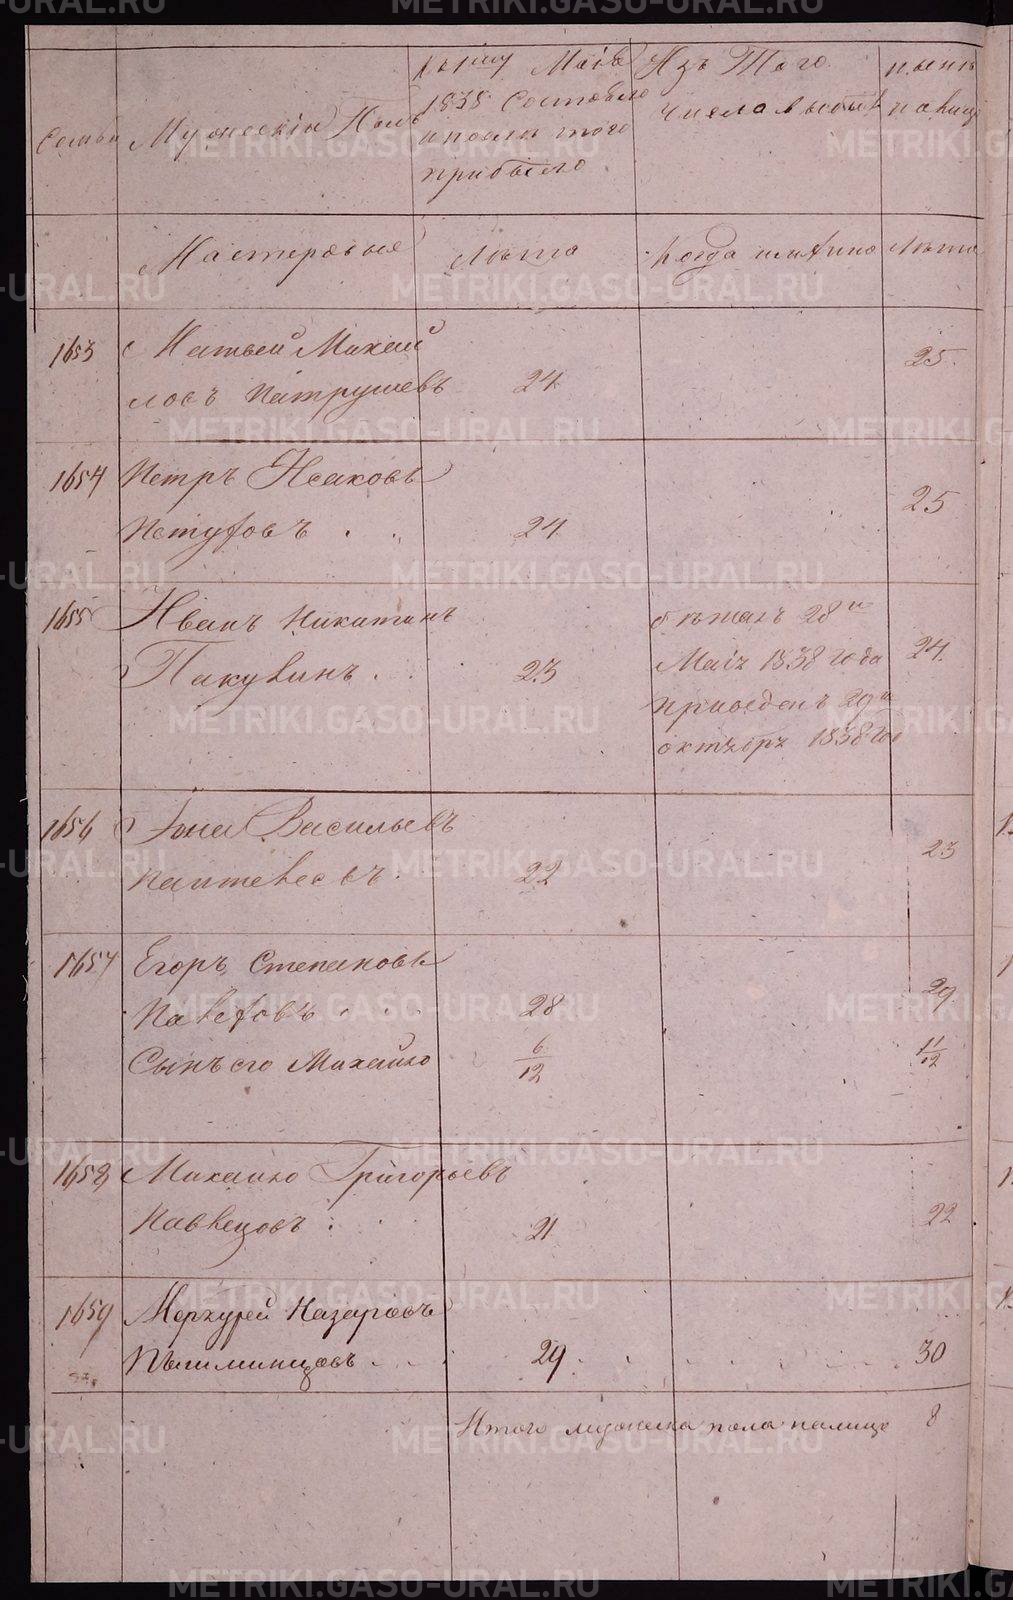 Семьи
Мужескiй Полъ
къ 1му Маiя
1838 Состояло
и после того
прибыло
Изъ Того
числа выбыло
нынѣ
на лицо
Мастеровые
Лѣта
когда имянно
Лѣта
1653 Матвей Михай
ловъ Патрушевъ 24 25
1654 Петръ Исаковъ
Петуховъ 24 25
1655 Иванъ Никитинъ
Пакулинъ 23
бѣжалъ 28го
Маiя 1838 года
приведенъ 29го
октября 1838 го
24
1656 Iона Васильевъ
22 23
1657 Егоръ Степановъ
28 29
Сынъ его Михайло 6/12 11/12
1658 Михайло Григорьевъ
21 22
1659 Меркурей Назаровъ
Пышминцовъ 29 30
Итого мужеска пола налицо 8
METRIKI.GASO-URAL.RU